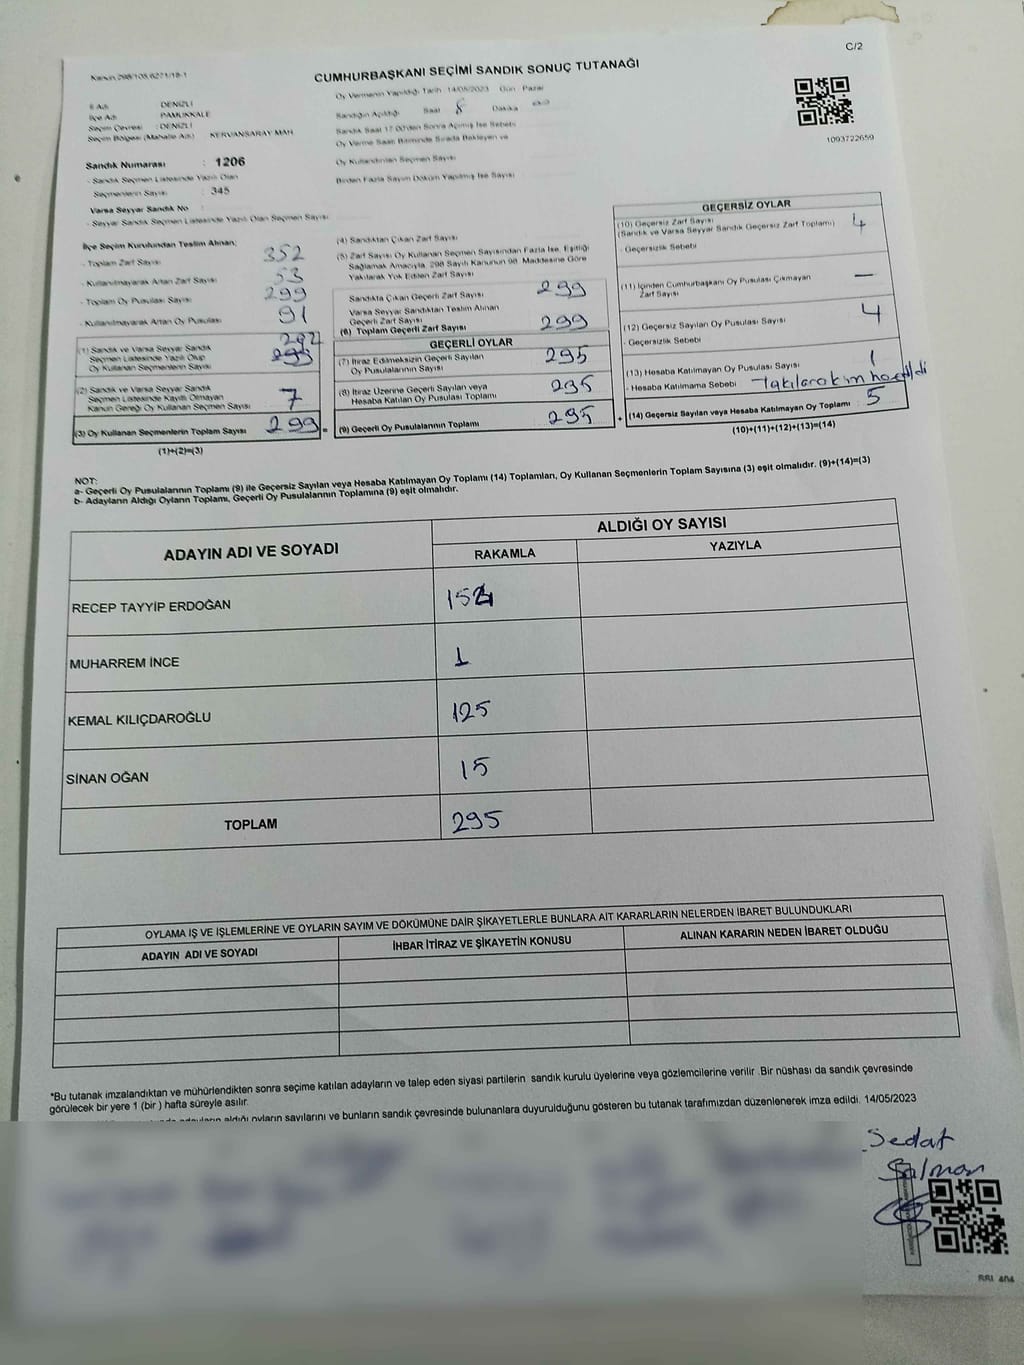 C/2
Kanun 298/105,6271/18-1
CUMHURBAŞKANI SEÇİMİ SANDIK SONUÇ TUTANAĞI
1093722659
İl Adı : DENİZLİ
İlçe Adı : PAMUKKALE
Seçim Çevresi : DENİZLİ
Seçim Bölgesi (Mahalle Adı) : KERVANSARAY MAH.
Sandık Numarası : 1206
- Sandık Seçmen Listesinde Yazılı Olan
Seçmenlerin Sayısı : 345
Varsa Seyyar Sandık No :
- Seyyar Sandık Seçmen Listesinde Yazılı Olan Seçmen Sayısı
Oy Vermenin Yapıldığı Tarih 14/05/2023 Gün Pazar
Sandığın Açıldığı Saat 8 Dakika
Sandık Saat 17.00'den Sonra Açılmış İse Sebebi
Oy Verme Saati Bitiminde Sırada Bekleyen ve
Oy Kullandırılan Seçmen Sayısı
Birden Fazla Sayım Döküm Yapılmış İse Sayısı
İlçe Seçim Kurulundan Teslim Alınan;
- Toplam Zarf Sayısı 352
- Kullanılmayarak Artan Zarf Sayısı 53
- Toplam Oy Pusulası Sayısı 299
- Kullanılmayarak Artan Oy Pusulası 91
(1) Sandık ve Varsa Seyyar Sandık
Seçmen Listesinde Yazılı Olup
Oy Kullanan Seçmenlerin Sayısı 292
(2) Sandık ve Varsa Seyyar Sandık
Seçmen Listesinde Kayıtlı Olmayan
Kanun Gereği Oy Kullanan Seçmen Sayısı 7
(3) Oy Kullanan Seçmenlerin Toplam Sayısı 299 =
(1)+(2)=(3)
(4) Sandıktan Çıkan Zarf Sayısı
(5) Zarf Sayısı Oy Kullanan Seçmen Sayısından Fazla İse, Eşitliği
Sağlamak Amacıyla, 298 Sayılı Kanunun 98. Maddesine Göre
Yakılarak Yok Edilen Zarf Sayısı
Sandıkta Çıkan Geçerli Zarf Sayısı 299
Varsa Seyyar Sandıktan Teslim Alınan
Geçerli Zarf Sayısı
(6) Toplam Geçerli Zarf Sayısı 299
GEÇERLİ OYLAR
(7) İtiraz Edilmeksizin Geçerli Sayılan
Oy Pusulalarının Sayısı 295
(8) İtiraz Üzerine Geçerli Sayılan veya
Hesaba Katılan Oy Pusulası Toplamı 295
(9) Geçerli Oy Pusulalarının Toplamı 295 +
GEÇERSİZ OYLAR
(10) Geçersiz Zarf Sayısı
(Sandık ve Varsa Seyyar Sandık Geçersiz Zarf Toplamı) 4
- Geçersizlik Sebebi
(11) İçinden Cumhurbaşkanı Oy Pusulası Çıkmayan
Zarf Sayısı —
(12) Geçersiz Sayılan Oy Pusulası Sayısı 4
- Geçersizlik Sebebi
(13) Hesaba Katılmayan Oy Pusulası Sayısı 1
- Hesaba Katılmama Sebebi
(14) Geçersiz Sayılan veya Hesaba Katılmayan Oy Toplamı : 5
(10)+(11)+(12)+(13)=(14)
NOT:
a- Geçerli Oy Pusulalarının Toplamı (9) ile Geçersiz Sayılan veya Hesaba Katılmayan Oy Toplamı (14) Toplamları, Oy Kullanan Seçmenlerin Toplam Sayısına (3) eşit olmalıdır. (9)+(14)=(3)
b- Adayların Aldığı Oyların Toplamı, Geçerli Oy Pusulalarının Toplamına (9) eşit olmalıdır.
ADAYIN ADI VE SOYADI
ALDIĞI OY SAYISI
RAKAMLA YAZIYLA
RECEP TAYYİP ERDOĞAN 154
MUHARREM İNCE 1
KEMAL KILIÇDAROĞLU 125
SİNAN OĞAN 15
TOPLAM 295
OYLAMA İŞ VE İŞLEMLERİNE VE OYLARIN SAYIM VE DÖKÜMÜNE DAİR ŞİKAYETLERLE BUNLARA AİT KARARLARIN NELERDEN İBARET BULUNDUKLARI
ADAYIN ADI VE SOYADI İHBAR İTİRAZ VE ŞİKAYETİN KONUSU ALINAN KARARIN NEDEN İBARET OLDUĞU
*Bu tutanak imzalandıktan ve mühürlendikten sonra seçime katılan adayların ve talep eden siyasi partilerin sandık kurulu üyelerine veya gözlemcilerine verilir .Bir nüshası da sandık çevresinde
görülecek bir yere 1 (bir ) hafta süreyle asılır.
adayların aldığı oyların sayılarını ve bunların sandık çevresinde bulunanlara duyurulduğunu gösteren bu tutanak tarafımızdan düzenlenerek imza edildi. 14/05/2023
Sedat
Salman